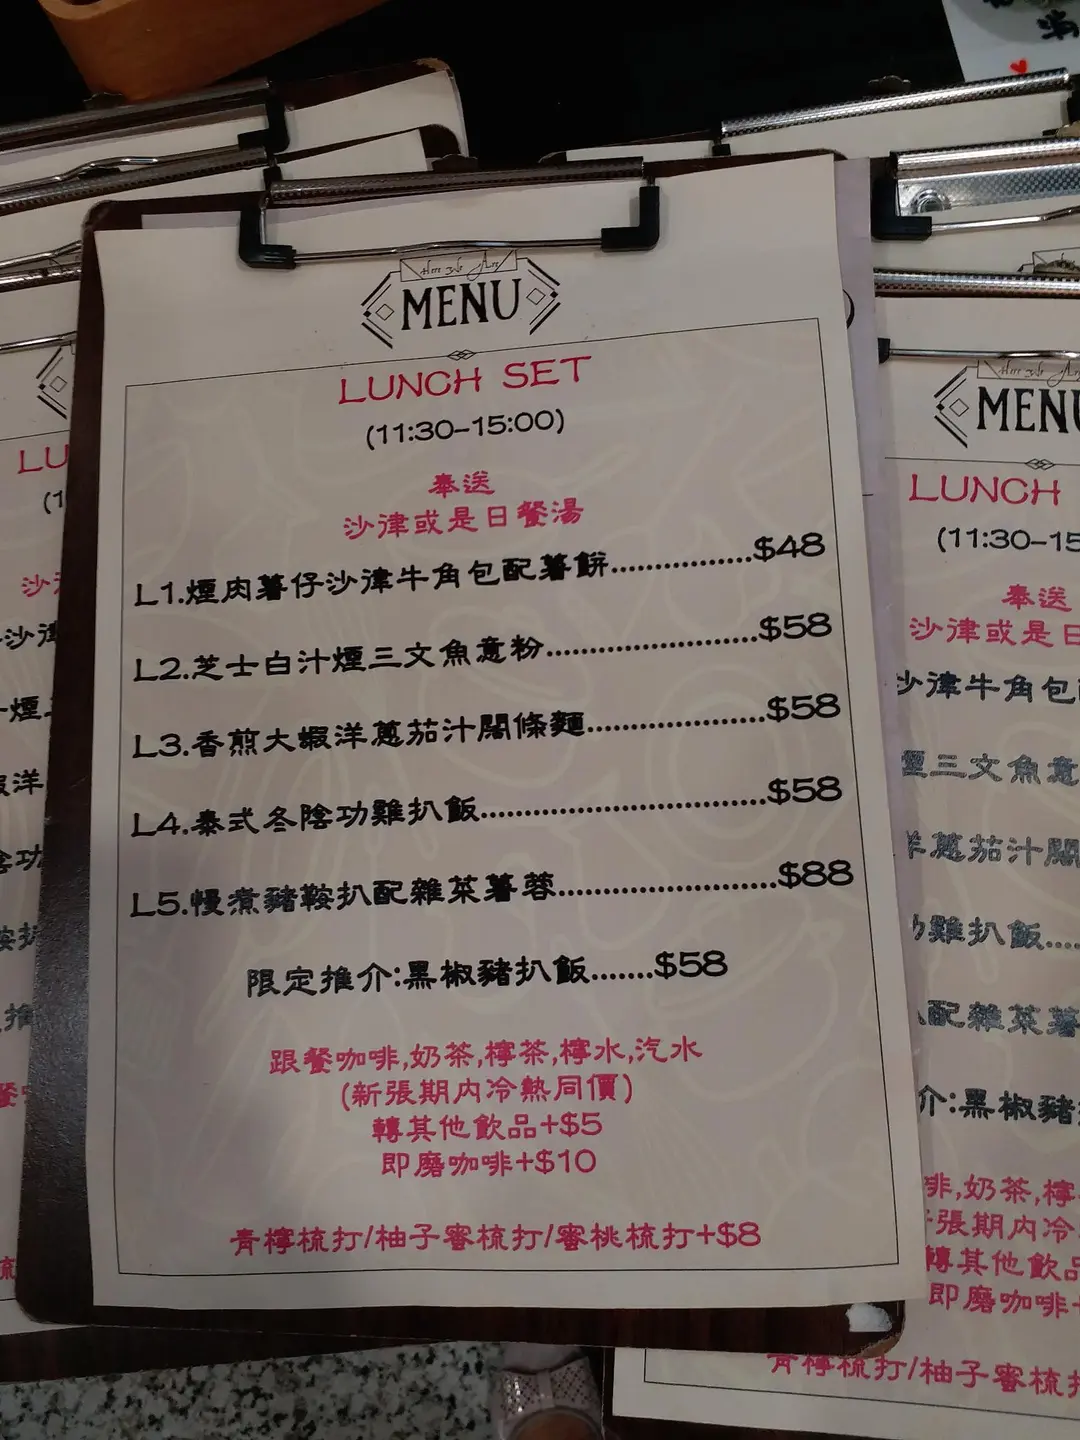 Here We Are
MENU
LUNCH SET
(11:30-15:00)
奉送
沙律或是日餐湯
L1.煙肉薯仔沙律牛角包配薯餅................$48
L2.芝士白汁煙三文魚意粉........................$58
L3.香煎大蝦洋蔥茄汁闊條麵....................$58
L4.泰式冬陰功雞扒飯................................$58
L5.慢煮豬鞍扒配雜菜薯蓉........................$88
限定推介:黑椒豬扒飯.......$58
跟餐咖啡,奶茶,檸茶,檸水,汽水
(新張期內冷熱同價)
轉其他飲品+$5
即磨咖啡+$10
青檸梳打/柚子蜜梳打/蜜桃梳打+$8
MENU
LUNCH
(11:30-15
奉送
沙律或是日
沙律牛角包
煙三文魚意
洋蔥茄汁闊
功雞扒飯....
配雜菜薯
介:黑椒豬
啡,奶茶,檸
張期內冷
轉其他飲品
即磨咖啡+
青檸梳打/柚子蜜梳打